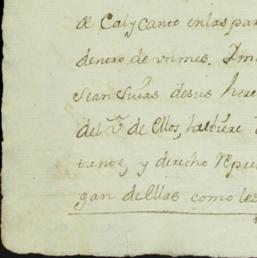 de Cal y Canto en las par
dentro de un mes. Ym
sean suias de sus here
del V.º de Ellos, hubiere
y derecho Repre
gan de Ellas como le